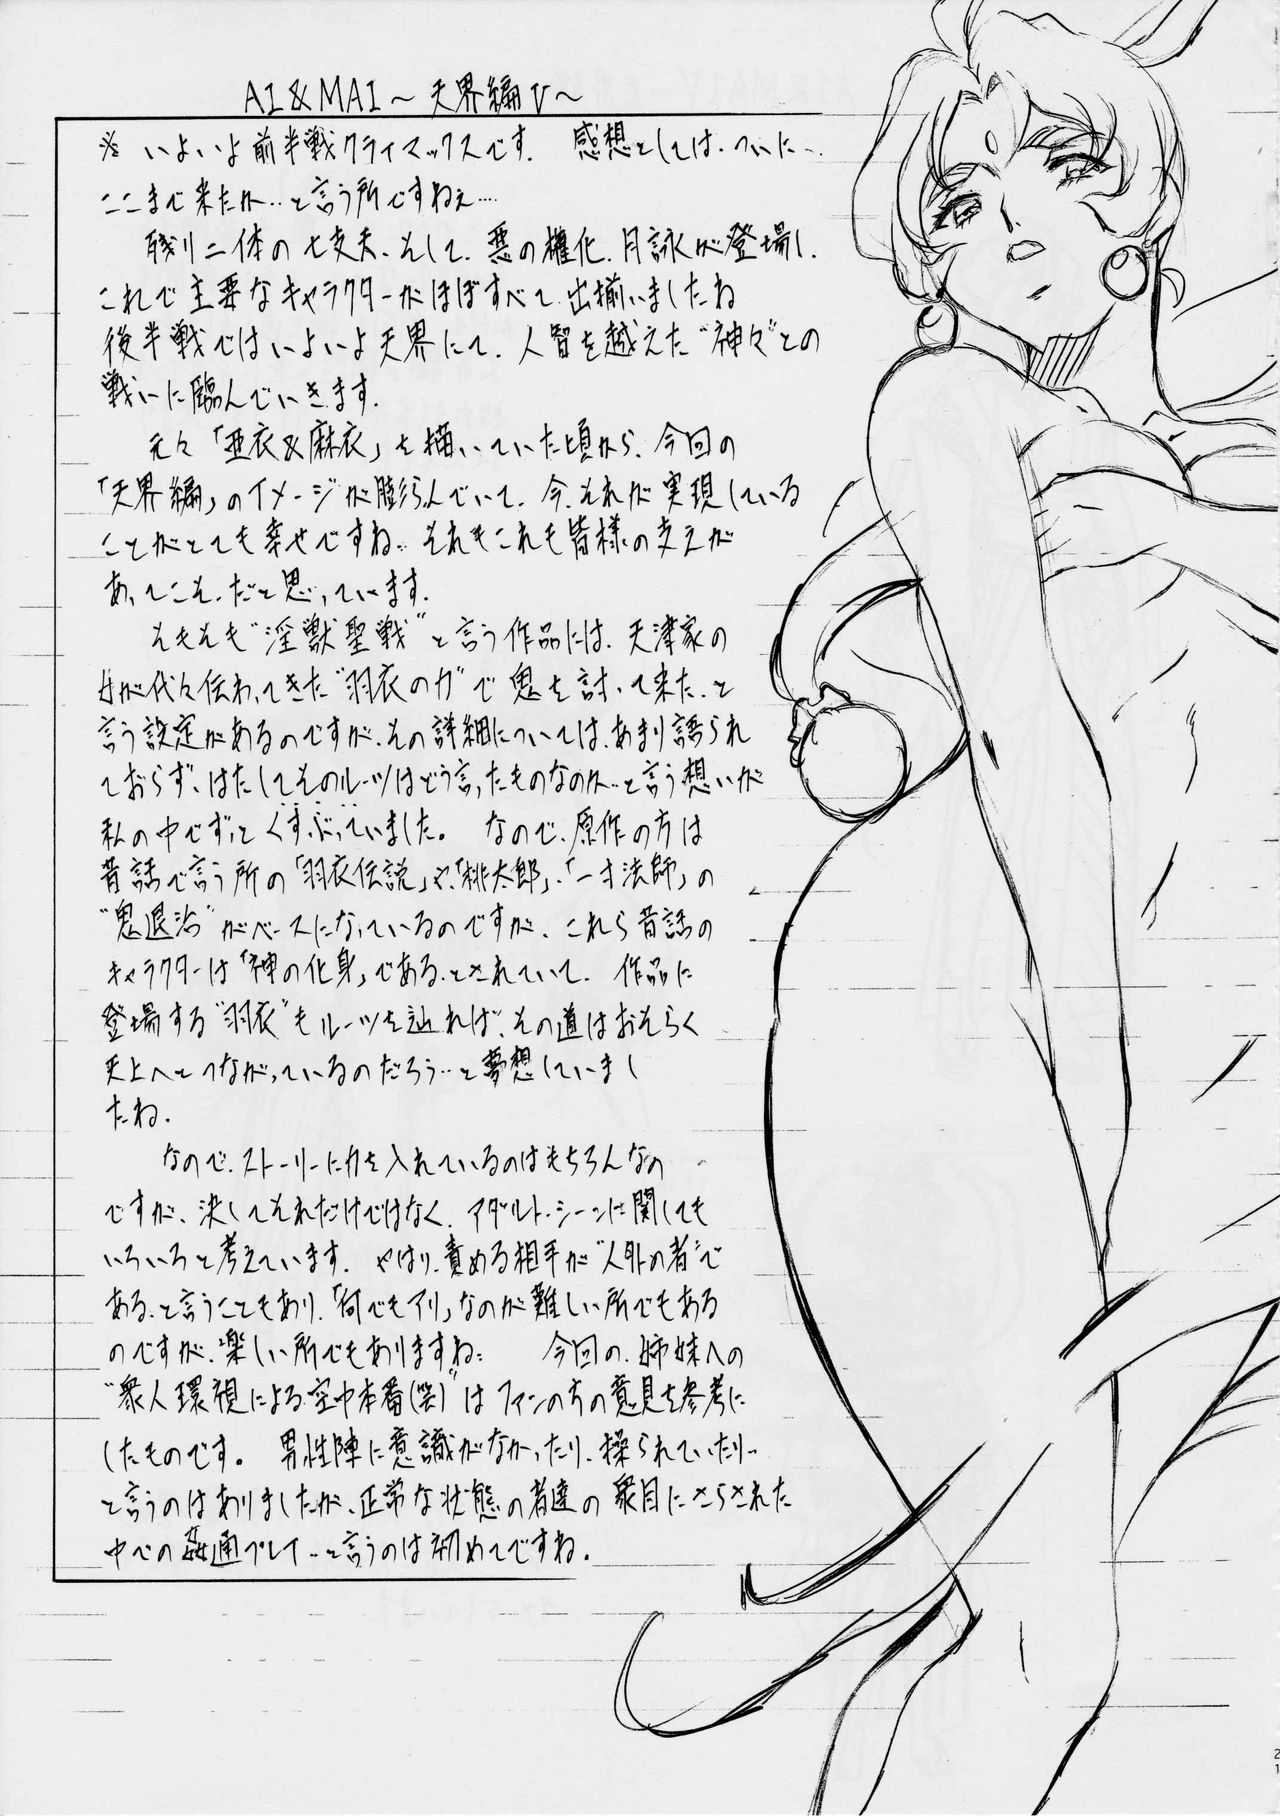 AI&MAI～天界編Ⅴ～
※ いよいよ前半戦クライマックスです. 感想としては、ついに…
ここまで来たか…と言う所ですねぇ….
残り二体の七丈夫、そして、悪の権化、月詠が登場し、
これで主要なキャラクターがほぼすべて出揃いましたね
後半戦ではいよいよ天界にて、人智を越えた"神々"との
戦いに臨んでいきます.
元々「亜衣&麻衣」を描いていた頃から、今回の
「天界編」のイメージが膨らんでいて、今、それが実現している
ことがとても幸せですね… それもこれも皆様の支えが
あってこそ、だと思っています.
そもそも"淫獣聖戦"と言う作品には、天津家の
女が代々伝わってきた"羽衣の力"で鬼を討って来た、と
言う設定があるのですが、その詳細については、あまり語られ
ておらず、はたしてそのルーツはどう言ったものなのか…と言う想いが
私の中でずっとくすぶっていました。 なので、原作の方は
昔話で言う所の「羽衣伝説」や、「桃太郎」、「一寸法師」の
"鬼退治"がベースになっているのですが、これら昔話の
キャラクターは「神の化身」である、とされていて、作品に
登場する"羽衣"もルーツを辿れば、その道はおそらく
天上へとつながっているのだろう…と夢想していまし
たね.
なので、ストーリーに力を入れているのはもちろんなの
ですが、決してそれだけではなく、アダルト・シーンに関しても
いろいろと考えています. やはり、責める相手が"人外の者"で
ある、と言うこともあり、「何でもアリ」なのが難しい所でもある
のですが、楽しい所でもありますね… 今回の、姉妹への
"衆人環視による空中本番(笑)"はファンの方の意見を参考に
したものです。 男性陣に意識がなかったり、操られていたり…
と言うのはありましたが、正常な状態の者達の衆目にさらされた
中での姦通プレイ…と言うのは初めてですね.
21